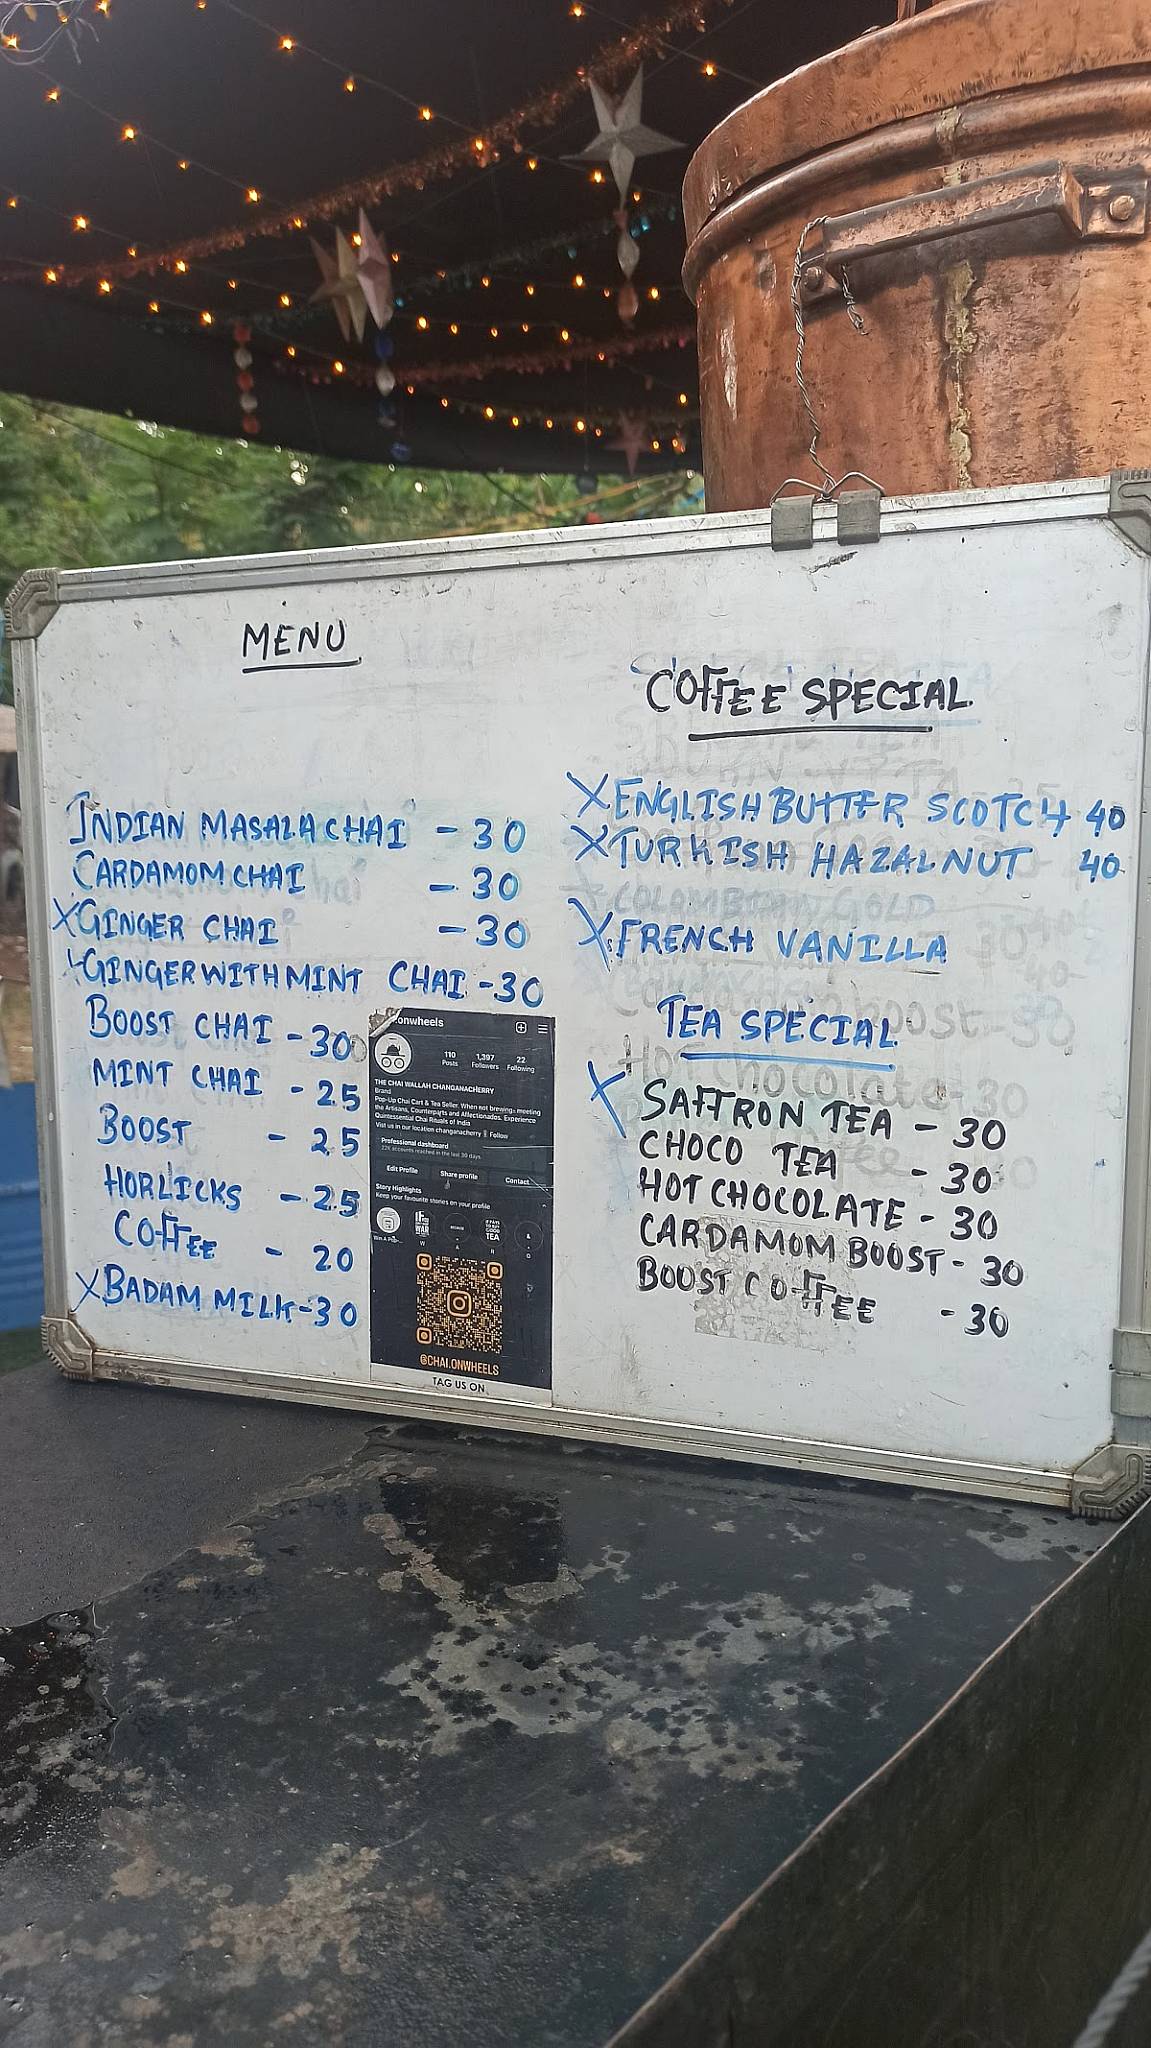 MENU
INDIAN MASALA CHAI - 30
CARDAMOM CHAI - 30
X GINGER CHAI - 30
X GINGER WITH MINT CHAI - 30
BOOST CHAI - 30
MINT CHAI - 25
BOOST - 25
HORLICKS - 25
COFFEE - 20
X BADAM MILK - 30
.onwheels
110 1,397 22
Posts Followers Following
THE CHAI WALLAH CHANGANACHERRY
Brand
Pop-Up Chai Cart & Tea Seller. When not brewing, meeting
the Artisans, Counterparts and Affectionados. Experience
Quintessential Chai Rituals of India
Vist us in our location changanacherry Follow
Professional dashboard
22K accounts reached in the last 30 days.
Edit Profile Share profile Contact
Story Highlights
Keep your favourite stories on your profile
@CHAI.ONWHEELS
TAG US ON
COFFEE SPECIAL
X ENGLISH BUTTER SCOTCH 40
X TURKISH HAZALNUT 40
COLOMBIAN GOLD
X FRENCH VANILLA
TEA SPECIAL
X SAFFRON TEA - 30
CHOCO TEA - 30
HOT CHOCOLATE - 30
CARDAMOM BOOST - 30
BOOST COFFEE - 30